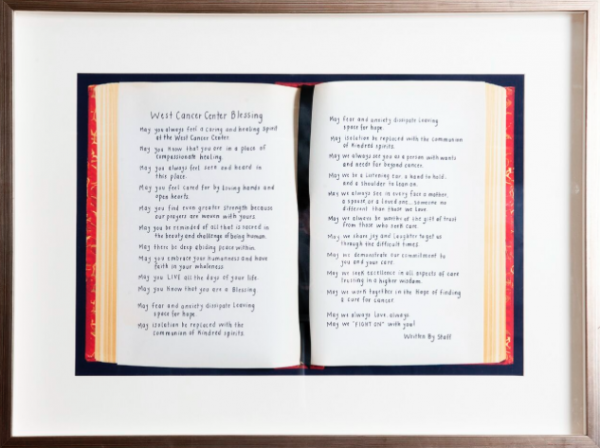 West Cancer Center Blessing
May you always feel a caring and healing spirit
of the West Cancer Center.
May you know that you are in a place of
compassionate healing.
May you always feel seen and heard in
this place.
May you feel cared for by loving hands and
open hearts.
May you find even greater strength because
our prayers are woven with yours.
May you be reminded of all that is sacred in
the beauty and challenge of being human.
May there be deep abiding peace within.
May you embrace your humanness and have
faith in your wholeness.
May you LIVE all the days of your life.
May you know that you are a Blessing
May fear and anxiety dissipate leaving
space for hope.
May isolation be replaced with the
communion of kindred spirits.
May fear and anxiety dissipate leaving
space for hope.
May isolation be replaced with the communion
of kindred spirits.
May we always see you as a person with wants
and needs far beyond cancer.
May we be a listening ear, a hand to hold,
and a shoulder to lean on.
May we always see in every face a mother,
a spouse or a loved one... someone no
different than those we love.
May we always be worthy of the gift of trust
from those who seek care.
May we share joy and laughter together
through the difficult times.
May we demonstrate our commitment to
you and your care.
May we seek excellence in all aspects of care
trusting in a higher wisdom.
May we work together in the hope of finding
a cure for cancer.
May we always love, always
May we "FIGHT ON" with you!
Written By Staff